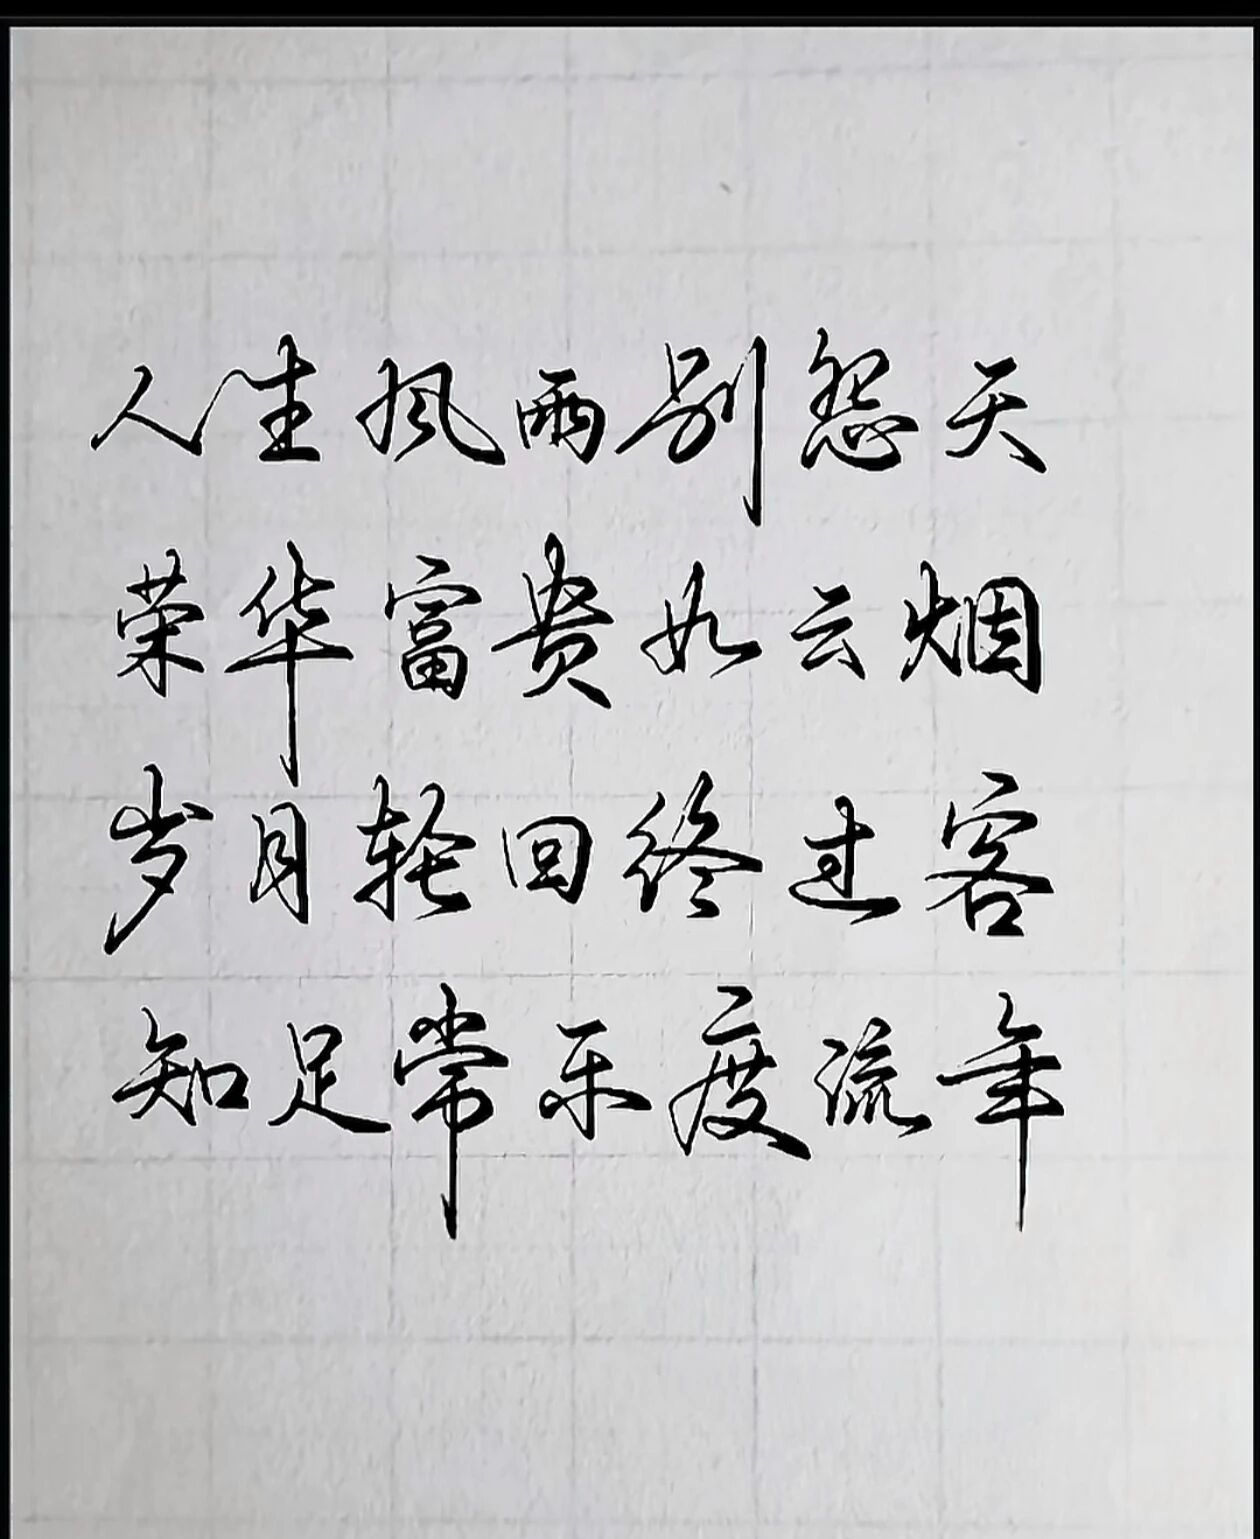 人生风雨别怨天
荣华富贵如云烟
岁月轮回终过客
知足常乐度流年